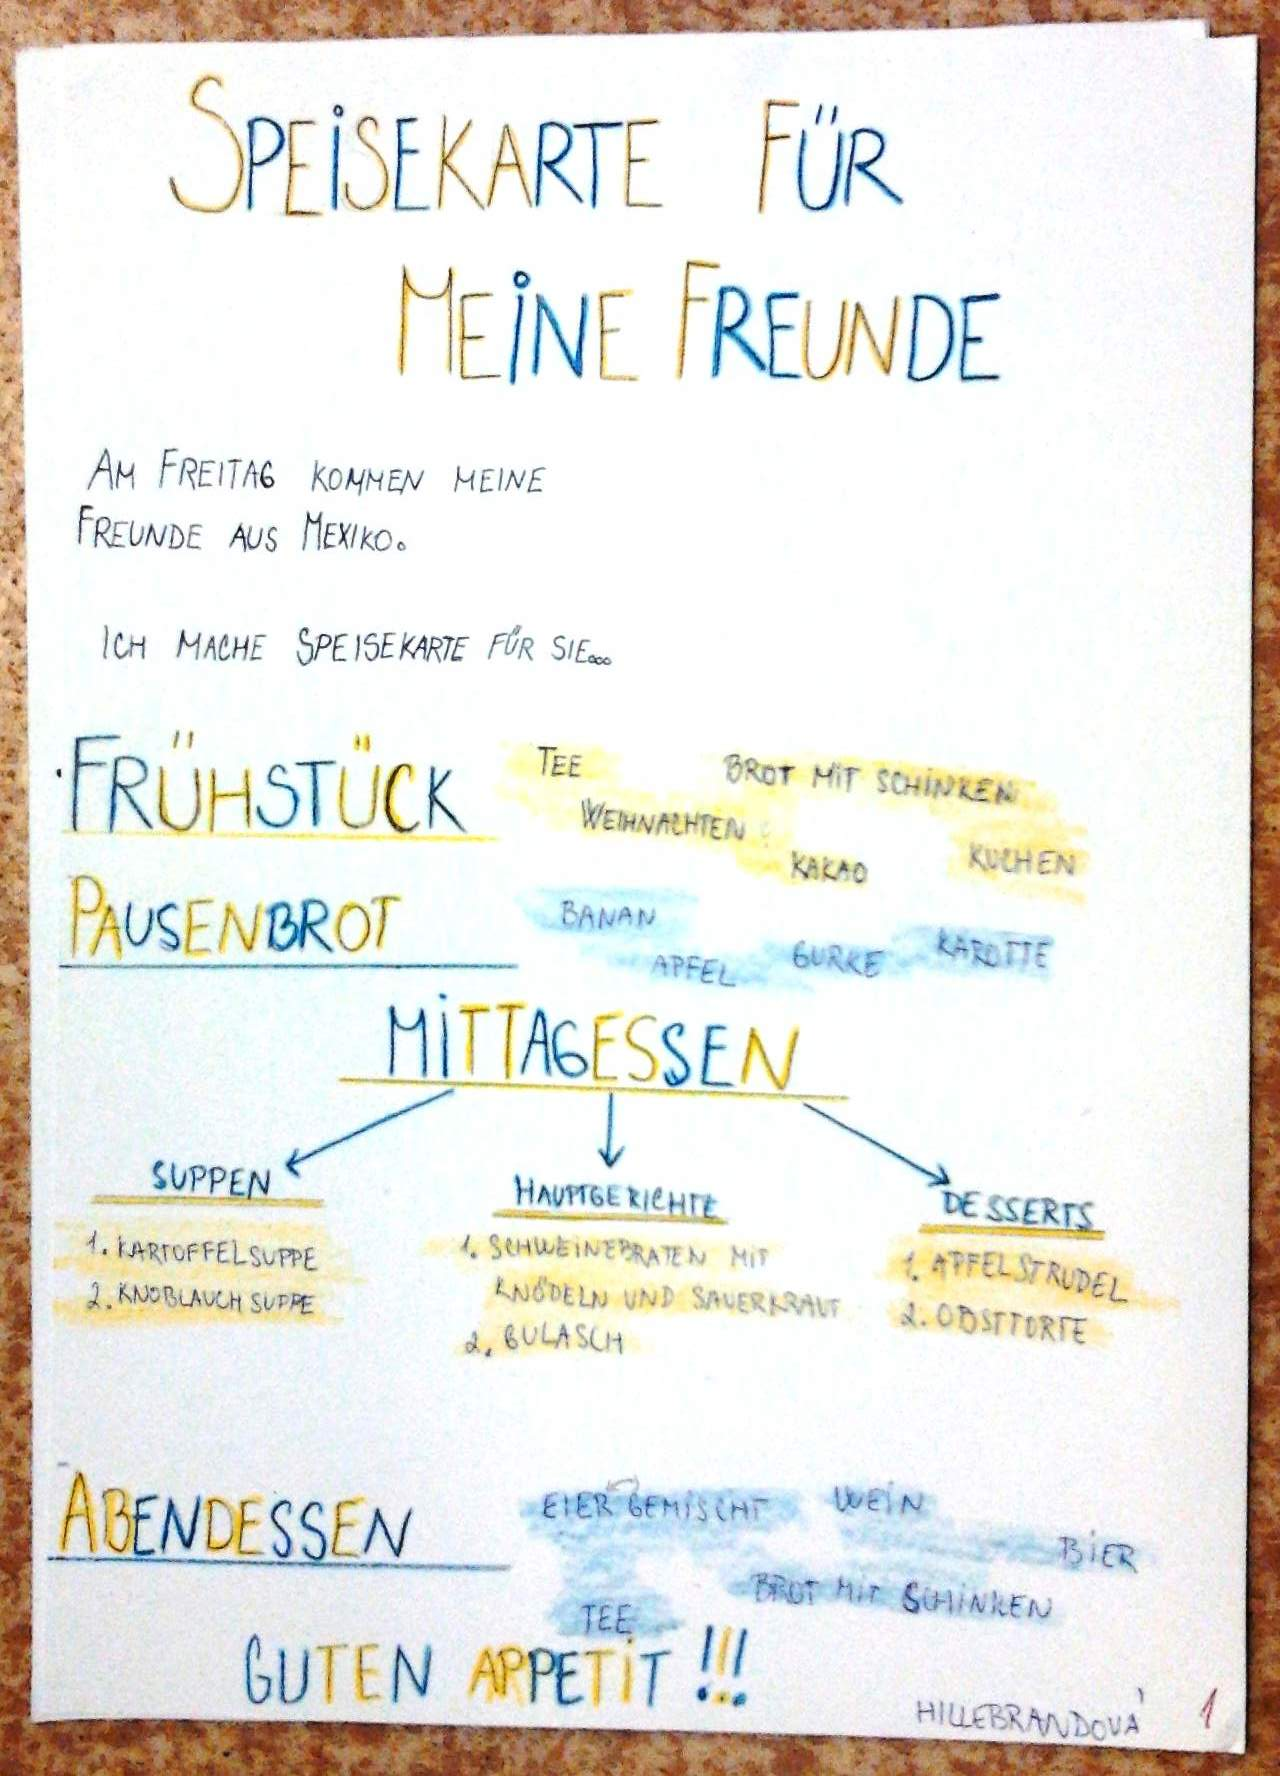 SPEiSEKARTE FÜR
MEiNE FREUNDE
AM FREITAG KOMMEN MEINE
FREUNDE AUS MEXIKO.
ICH MACHE SPEISEKARTE FÜR SIE...
FRÜHSTÜCK
TEE BROT MiT SCHiNKEN
WEIHNACHTEN
KAKAO KUCHEN
PAUSENBROT
BANAN
APFEL GURKE KAROTTE
MiTTAGESSEN
SUPPEN HAUPTGERICHTE DESSERTS
1. KARTOFFELSUPPE
2. KNOBLAUCHSUPPE
1. SCHWEiNEBRATEN MiT
KNÖDELN UND SAUERKRAUT
2. GULASCH
1. APFELSTRUDEL
2. OBSTTORTE
ABENDESSEN
EIER GEMiSCHT WEiN
BiER
BROT MiT SCHiNKEN
TEE
GUTEN APPETiT !!!
HILLEBRANDOVÁ 1